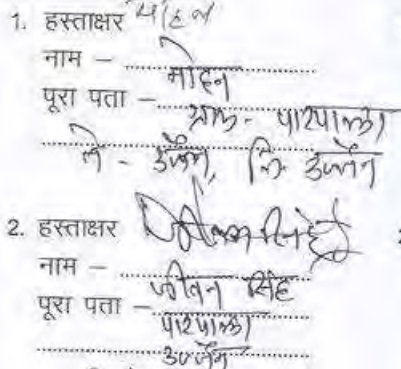 1. हस्ताक्षर मोहन
नाम – मोहन
पूरा पता – ग्राम - पारपाला
ते - उज्जैन, जि उज्जैन
2. हस्ताक्षर
नाम – जीवन सिंह
पूरा पता – पारपाला
उज्जैन